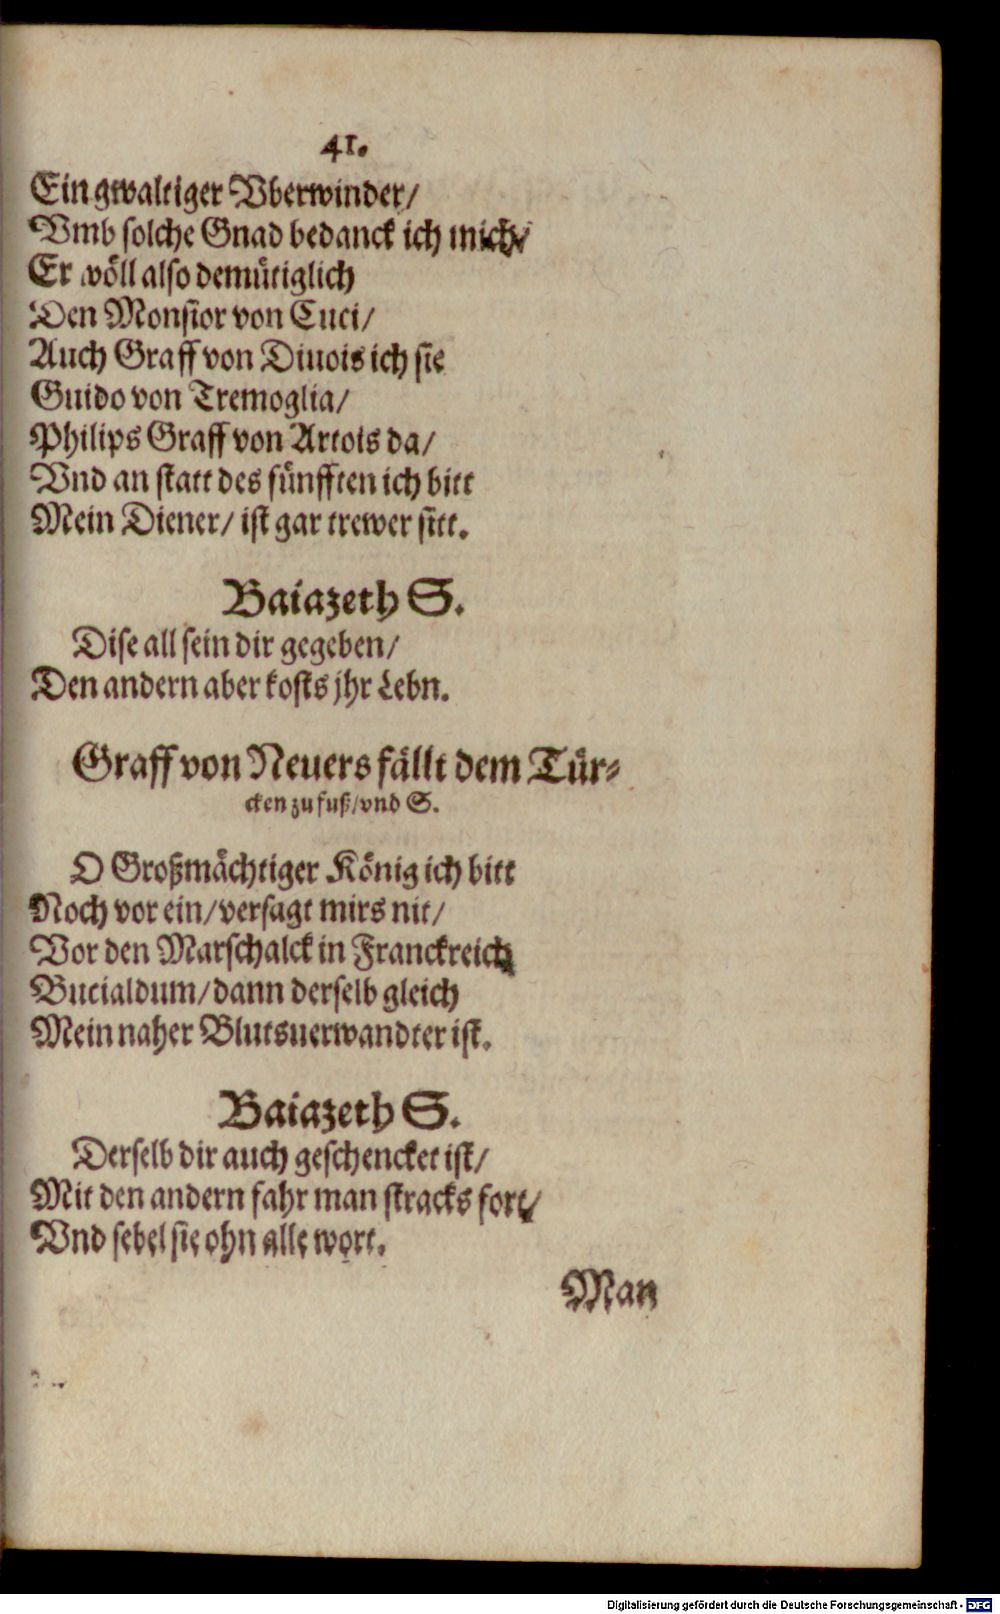 41.
Ein gwaltiger Vberwinder/
Vmb solche Gnad bedanck ich mich/
Er wöll also demütiglich
Den Monsior von Cuci/
Auch Graff von Diuois ich sie
Guido von Tremoglia/
Philips Graff von Artois da/
Vnd an statt des fünfften ich bitt
Mein Diener/ ist gar trewer sitt.
Baiazeth S.
Dise all sein dir gegeben/
Den andern aber kosts jhr Lebn.
Graff von Neuers fällt dem Tür-
cken zu fuß/ vnd S.
O Großmächtiger König ich bitt
Noch vor ein/ versagt mirs nit/
Vor den Marschalck in Franckreich
Bucialdum/ dann derselb gleich
Mein naher Blutsuerwandter ist.
Baiazeth S.
Derselb dir auch geschencket ist/
Mit den andern fahr man stracks fort/
Vnd sebel sie ohn alle wort.
Man
Digitalisierung gefördert durch die Deutsche Forschungsgemeinschaft - DFG